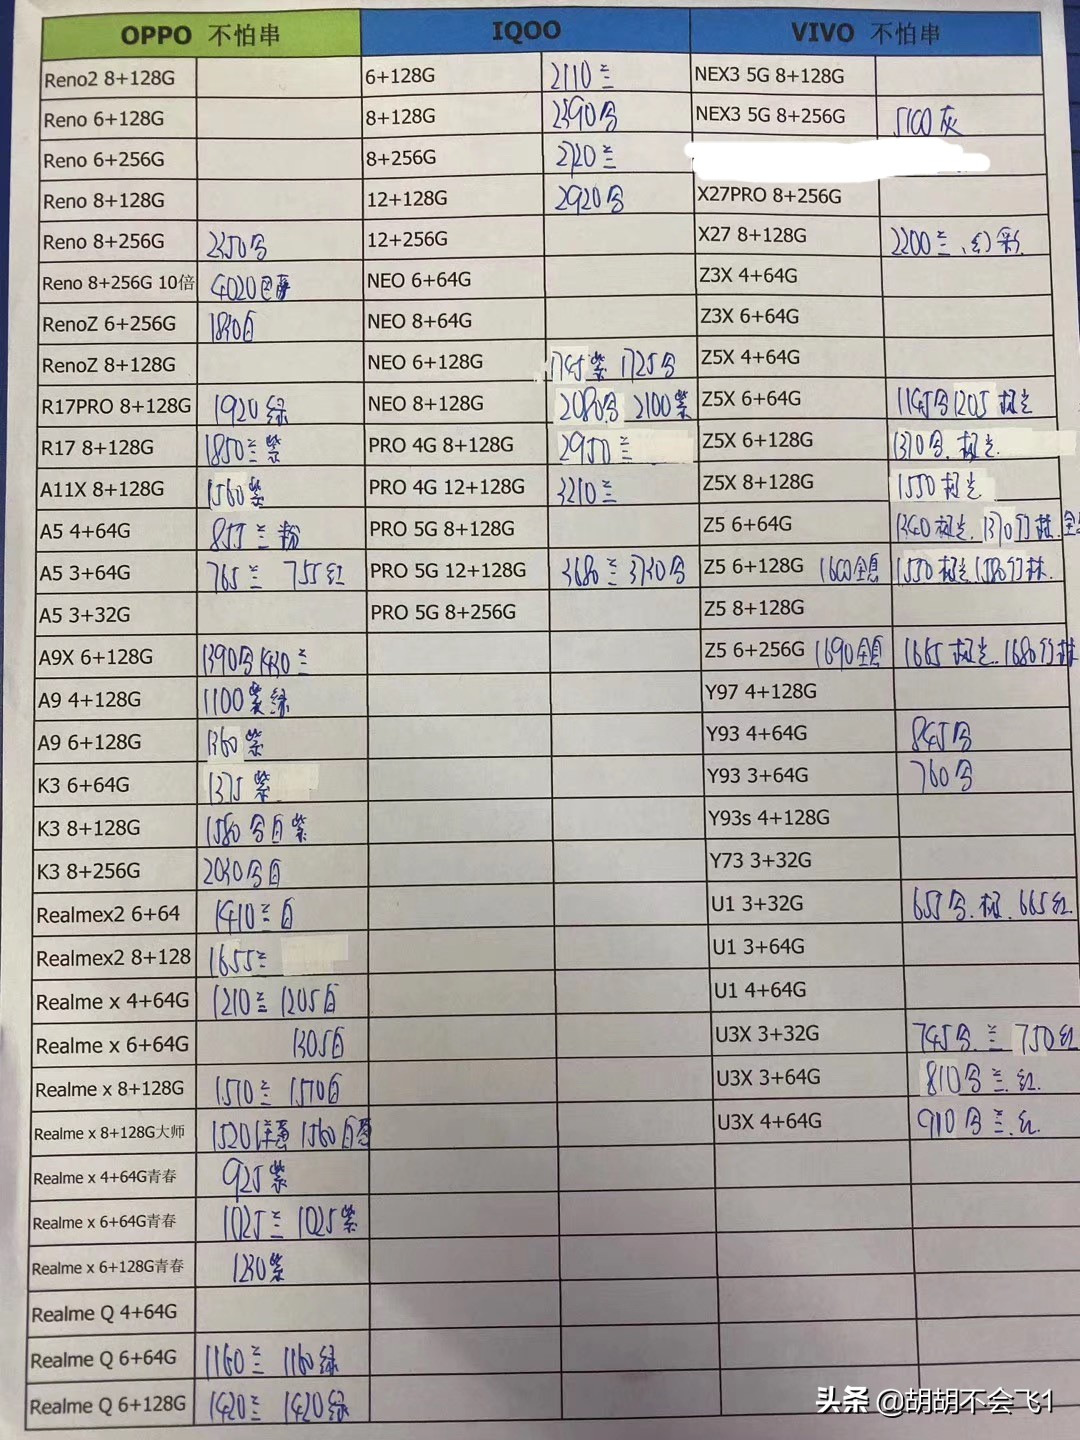 OPPO 不怕串 IQOO VIVO 不怕串
Reno2 8+128G 6+128G 2110兰 NEX3 5G 8+128G
Reno 6+128G 8+128G 2390合 NEX3 5G 8+256G 5100灰
Reno 6+256G 8+256G 2720兰
Reno 8+128G 12+128G 2920合 X27PRO 8+256G
Reno 8+256G 2350合 12+256G X27 8+128G 2200兰、幻彩
Reno 8+256G 10倍 4020 NEO 6+64G Z3X 4+64G
RenoZ 6+256G 1830白 NEO 8+64G Z3X 6+64G
RenoZ 8+128G NEO 6+128G 1745紫 1725合 Z5X 4+64G
R17PRO 8+128G 1920绿 NEO 8+128G 2080合 2100紫 Z5X 6+64G 1145合 1205极光
R17 8+128G 1850兰紫 PRO 4G 8+128G 2950兰 Z5X 6+128G 1310合.极光.
A11X 8+128G 1560紫 PRO 4G 12+128G 3210兰 Z5X 8+128G 1550极光
A5 4+64G 855兰粉 PRO 5G 8+128G Z5 6+64G 1340极光.1370竹林.全
A5 3+64G 765兰 755红 PRO 5G 12+128G 3680兰 3730合 Z5 6+128G 1600全息 1550极光 1580竹林.
A5 3+32G PRO 5G 8+256G Z5 8+128G
A9X 6+128G 1390合 1430兰 Z5 6+256G 1690全息 1665极光..1680竹林
A9 4+128G 1100紫绿 Y97 4+128G
A9 6+128G 1360紫 Y93 4+64G 845合
K3 6+64G 1375紫 Y93 3+64G 760合
K3 8+128G 1580合白紫 Y93s 4+128G
K3 8+256G 2030合白 Y73 3+32G
Realmex2 6+64 1410兰白 U1 3+32G 655合.极.665红
Realmex2 8+128 1655兰 U1 3+64G
Realme x 4+64G 1210兰 1205白 U1 4+64G
Realme x 6+64G 1305白 U3X 3+32G 745合.兰 750红
Realme x 8+128G 1510兰 1570白 U3X 3+64G 810合兰.红.
Realme x 8+128G大师 1520洋葱 1560白 U3X 4+64G 910合兰.红.
Realme x 4+64G青春 925紫
Realme x 6+64G青春 1025兰 1025紫
Realme x 6+128G青春 1230紫
Realme Q 4+64G
Realme Q 6+64G 1160兰 1160绿
Realme Q 6+128G 1420兰 1420绿
头条 @胡胡不会飞1